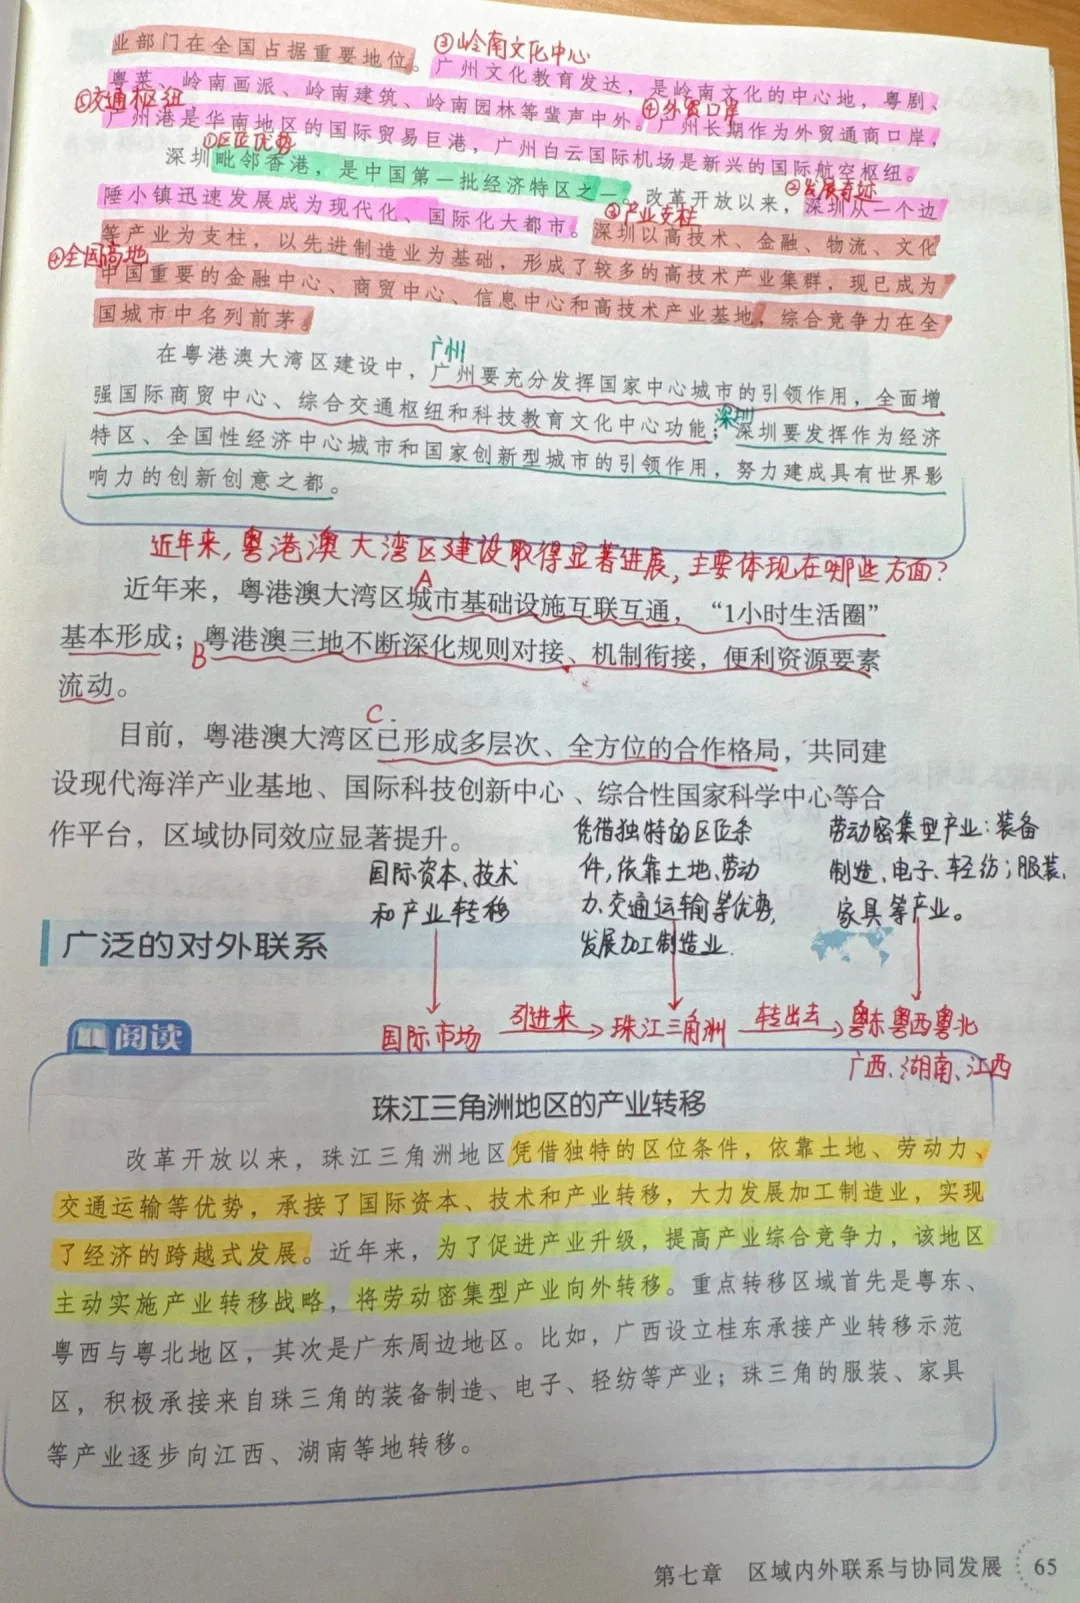 业部门在全国占据重要地位。
③岭南文化中心
广州文化教育发达，是岭南文化的中心地，粤剧、
粤菜、岭南画派、岭南建筑、岭南园林等蜚声中外。
④外贸口岸
广州长期作为外贸通商口岸，
⑤交通枢纽
广州港是华南地区的国际贸易巨港，广州白云国际机场是新兴的国际航空枢纽。
①区位优势
深圳毗邻香港，是中国第一批经济特区之一。
②发展奇迹
改革开放以来，深圳从一个边
陲小镇迅速发展成为现代化、国际化大都市。
③产业支柱
深圳以高技术、金融、物流、文化
等产业为支柱，以先进制造业为基础，形成了较多的高技术产业集群，现已成为
④全国高地
中国重要的金融中心、商贸中心、信息中心和高技术产业基地，综合竞争力在全
国城市中名列前茅。
广州
在粤港澳大湾区建设中，广州要充分发挥国家中心城市的引领作用，全面增
强国际商贸中心、综合交通枢纽和科技教育文化中心功能；
深圳
深圳要发挥作为经济
特区、全国性经济中心城市和国家创新型城市的引领作用，努力建成具有世界影
响力的创新创意之都。
近年来，粤港澳大湾区建设取得显著进展，主要体现在哪些方面？
A
近年来，粤港澳大湾区城市基础设施互联互通，“1小时生活圈”
基本形成；粤港澳三地不断深化规则对接、机制衔接，便利资源要素
B
流动。
C.
目前，粤港澳大湾区已形成多层次、全方位的合作格局，共同建
设现代海洋产业基地、国际科技创新中心、综合性国家科学中心等合
作平台，区域协同效应显著提升。
国际资本、技术
和产业转移
凭借独特的区位条
件，依靠土地、劳动
力、交通运输等优势，
发展加工制造业.
劳动密集型产业：装备
制造、电子、轻纺；服装、
家具等产业。
广泛的对外联系
国际市场 引进来 珠江三角洲 转出去 粤东粤西粤北
广西、湖南、江西
阅读
珠江三角洲地区的产业转移
改革开放以来，珠江三角洲地区凭借独特的区位条件，依靠土地、劳动力、
交通运输等优势，承接了国际资本、技术和产业转移，大力发展加工制造业，实现
了经济的跨越式发展。近年来，为了促进产业升级，提高产业综合竞争力，该地区
主动实施产业转移战略，将劳动密集型产业向外转移。重点转移区域首先是粤东、
粤西与粤北地区，其次是广东周边地区。比如，广西设立桂东承接产业转移示范
区，积极承接来自珠三角的装备制造、电子、轻纺等产业；珠三角的服装、家具
等产业逐步向江西、湖南等地转移。
第七章 区域内外联系与协同发展 65